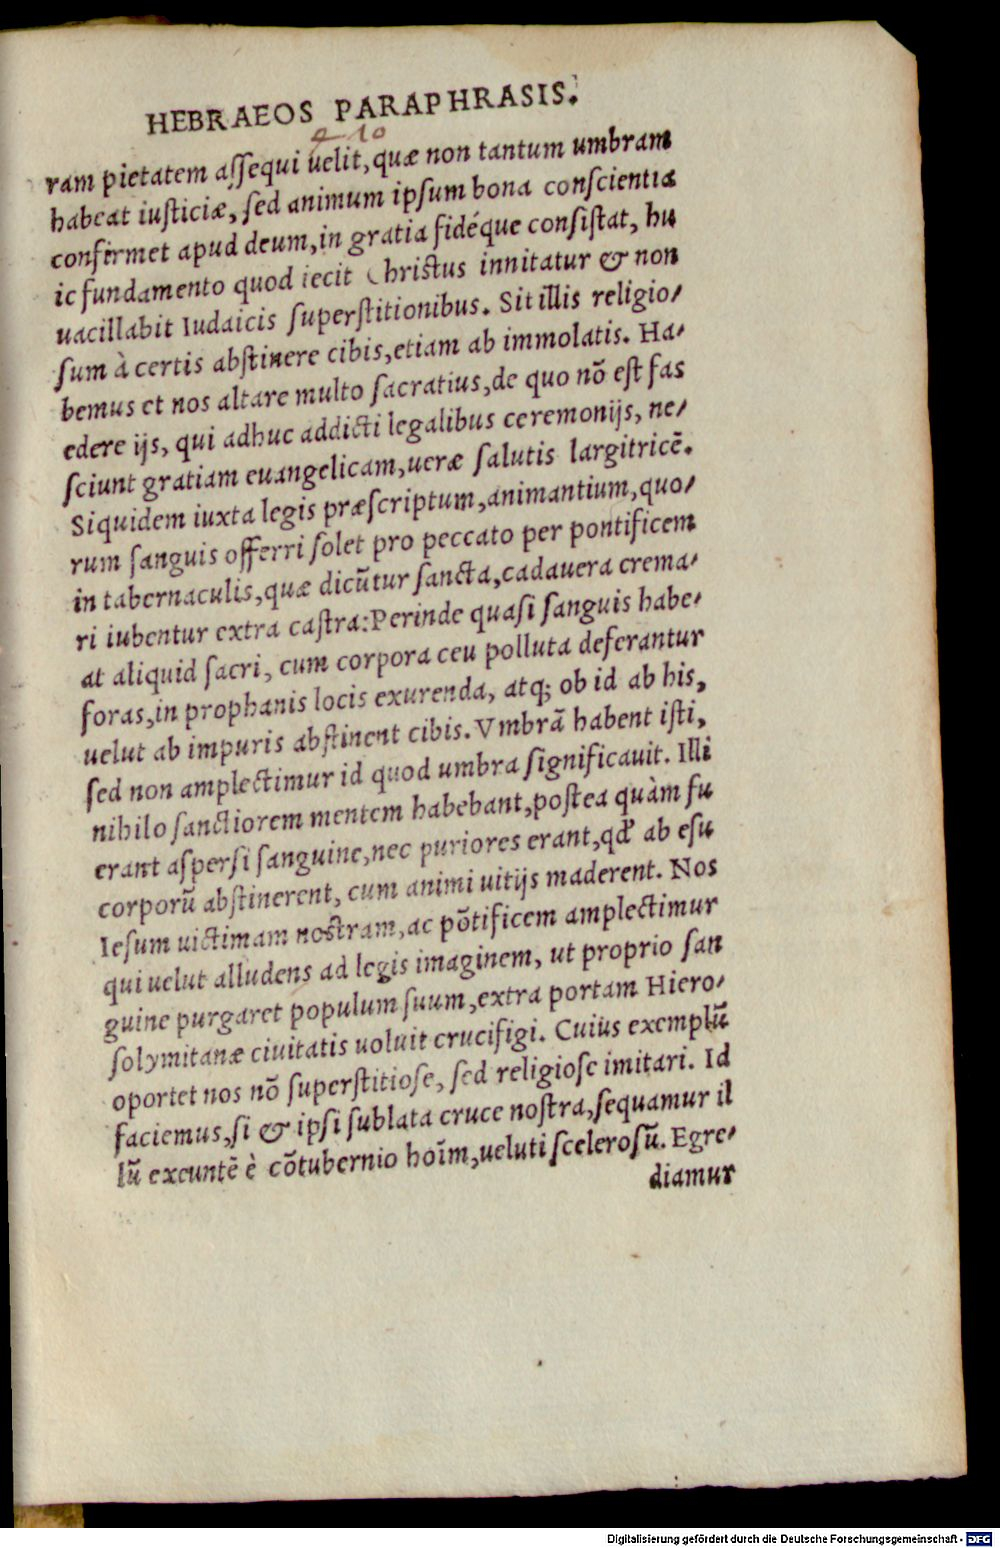 HEBRAEOS PARAPHRASIS.
ram pietatem aſſequi uelit, quæ non tantum umbram
habeat iuſticiæ, ſed animum ipſum bona conſcientia
confirmet apud deum, in gratia fidéque conſiſtat, hu
ic fundamento quod iecit Chriſtus innitatur & non
uacillabit Iudaicis ſuperſtitionibus. Sit illis religio/
ſum à certis abſtinere cibis, etiam ab immolatis. Ha/
bemus et nos altare multo ſacratius, de quo nõ eſt fas
edere ijs, qui adhuc addicti legalibus ceremonijs, ne/
ſciunt gratiam euangelicam, ueræ ſalutis largitricẽ.
Siquidem iuxta legis præſcriptum, animantium, quo/
rum ſanguis offerri ſolet pro peccato per pontificem
in tabernaculis, quæ dicũtur ſancta, cadauera crema/
ri iubentur extra caſtra: Perinde quaſi ſanguis habe/
at aliquid ſacri, cum corpora ceu polluta deferantur
foras, in prophanis locis exurenda, atq; ob id ab his,
uelut ab impuris abſtinent cibis. Vmbrã habent iſti,
ſed non amplectimur id quod umbra ſignificauit. Illi
nihilo ſanctiorem mentem habebant, poſtea quàm fu
erant aſperſi ſanguine, nec puriores erant, qď ab eſu
corporũ abſtinerent, cum animi uitijs maderent. Nos
Ieſum uictimam noſtram, ac põtificem amplectimur
qui uelut alludens ad legis imaginem, ut proprio ſan
guine purgaret populum ſuum, extra portam Hiero/
ſolymitanæ ciuitatis uoluit crucifigi. Cuius exemplũ
oportet nos nõ ſuperſtitioſe, ſed religioſe imitari. Id
faciemus, ſi & ipſi ſublata cruce noſtra, ſequamur il
lũ exeuntẽ è cõtubernio hoĩm, ueluti ſceleroſũ. Egre/
diamur
Digitalisierung gefördert durch die Deutsche Forschungsgemeinschaft - DFG